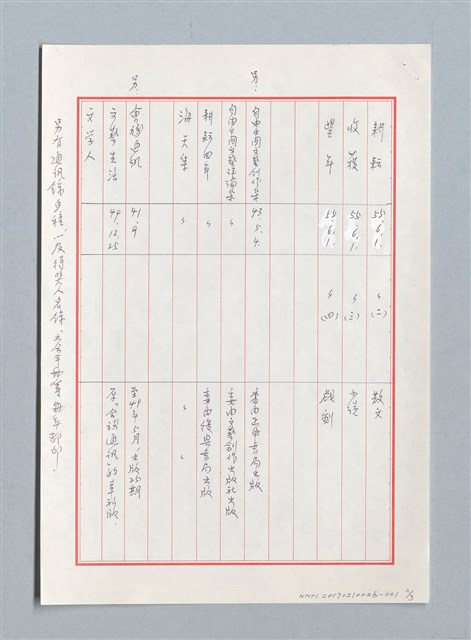 耕耘 55.6.1. 〃(二) 散文
收穫 55.6.1. 〃(三) 小說
豐年 55.6.1. 〃(四) 戲劇
另：自由中國文藝創作集 43.5.4. 委由正中書局出版
自由中國文藝論評集 〃 委由文藝創作出版社出版
耕耘四年 〃 委由復興書局出版
海天集 〃 〃
另：會務通訊 41.9 至49年5月，出版25期
文藝生活 49.12.25 原「會務通訊」的革新版．
文学人
另有通訊錄多種，以及得獎人名錄、大會手冊等每年都印．
NMTL20170210026-001 2/3